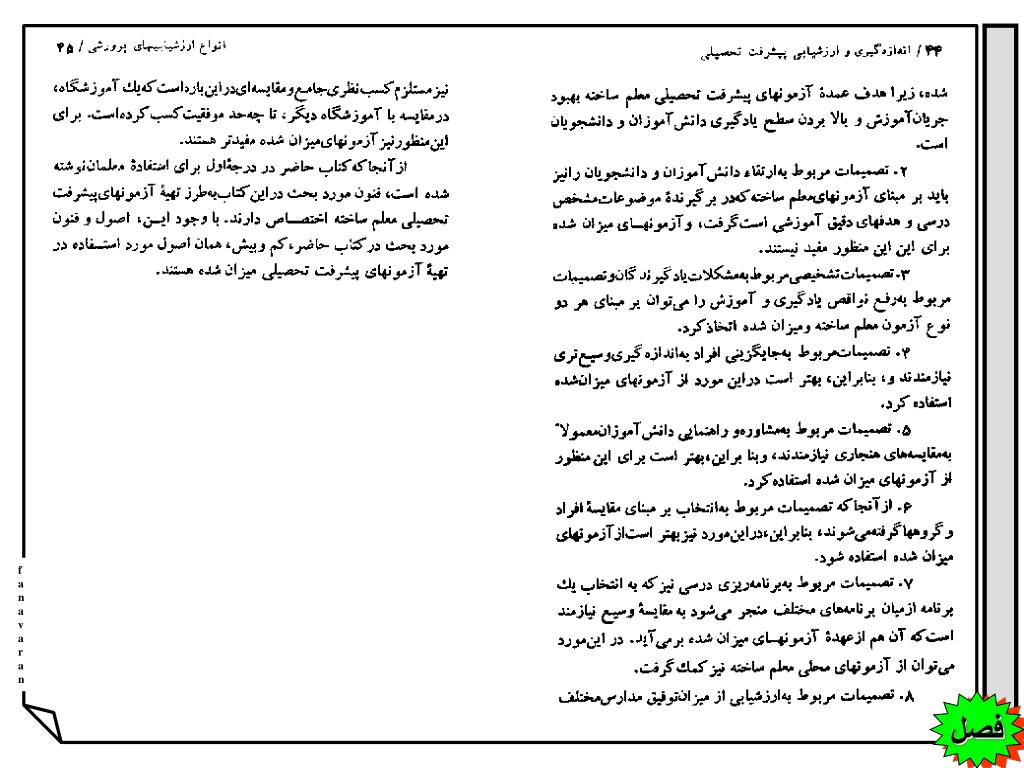 ۴۴ / اندازه‌گیری و ارزشیابی پیشرفت تحصیلی
شده، زیرا هدف عمدهٔ آزمونهای پیشرفت تحصیلی معلم ساخته بهبود
جریان‌آموزش و بالا بردن سطح یادگیری دانش‌آموزان و دانشجویان
است.
۲. تصمیمات مربوط به‌ارتقاء دانش‌آموزان و دانشجویان رانیز
باید بر مبنای آزمونهای‌معلم ساخته‌که‌در برگیرندهٔ موضوعات‌مشخص
درسی و هدفهای دقیق آموزشی است‌گرفت، و آزمونهـای میزان شده
برای این این منظور مفید نیستند.
۳. تصمیمات‌تشخیصی‌مربوط‌به‌مشکلات‌یادگیرندگان‌وتصمیمات
مربوط به‌رفع نواقص یادگیری و آموزش را می‌توان بر مبنای هر دو
نوع آزمون معلم ساخته ومیزان شده اتخاذکرد.
۴. تصمیمات‌مربوط به‌جایگزینی افراد به‌اندازه‌گیری‌وسیع‌تری
نیازمندند و، بنابراین، بهتر است دراین مورد از آزمونهای میزان‌شده
استفاده کرد.
۵. تصمیمات مربوط به‌مشاوره‌و راهنمایی دانش‌آموزان‌معمولاً
به‌مقایسه‌های هنجاری نیازمندند، وبنا براین،بهتر است برای این‌منظور
از آزمونهای میزان شده استفاده‌کرد.
۶. از آنجاکه تصمیمات مربوط به‌انتخاب بر مبنای مقایسهٔ افراد
و گروهها گرفته‌می‌شوند، بنابراین،دراین‌مورد نیزبهتر است‌از آزمونهای
میزان شده استفاده شود.
۷. تصمیمات مربوط به‌برنامه‌ریزی درسی نیزکه به انتخاب یك
برنامه ازمیان برنامه‌های مختلف منجر می‌شود به‌مقایسهٔ وسیع نیازمند
است‌که آن هم از عهدهٔ آزمونهـای میزان شده برمی‌آید. در این‌مورد
می‌توان از آزمونهای محلی معلم ساخته نیز کمك گرفت.
۸. تصمیمات مربوط به‌ارزشیابی از میزان‌توفیق مدارس‌مختلف
انواع ارزشیابیهای پرورشی / ۴۵
نیزمستلزم‌کسب‌نظری‌جامع‌ومقایسه‌ای‌دراین‌باره‌است‌که‌یك آموزشگاه،
درمقایسه با آموزشگاه دیگر، تا چه‌حد موفقیت‌کسب کرده‌است. برای
این‌منظورنیز آزمونهای‌میزان شده مفیدتر هستند.
ازآنجاکه‌کتاب حاضر در درجهٔ‌اول برای استفادهٔ معلمان‌نوشته
شده است، فنون مورد بحث دراین‌کتاب‌به‌طرز تهیهٔ آزمونهای‌پیشرفت
تحصیلی معلم ساخته اختصـاص دارند. با وجود ایـن، اصول و فنون
مورد بحث درکتاب حاضر،کم وبیش، همان اصول مورد استفـاده در
تهیهٔ آزمونهای پیشرفت تحصیلی میزان شده هستند.
fanavaran
فصل